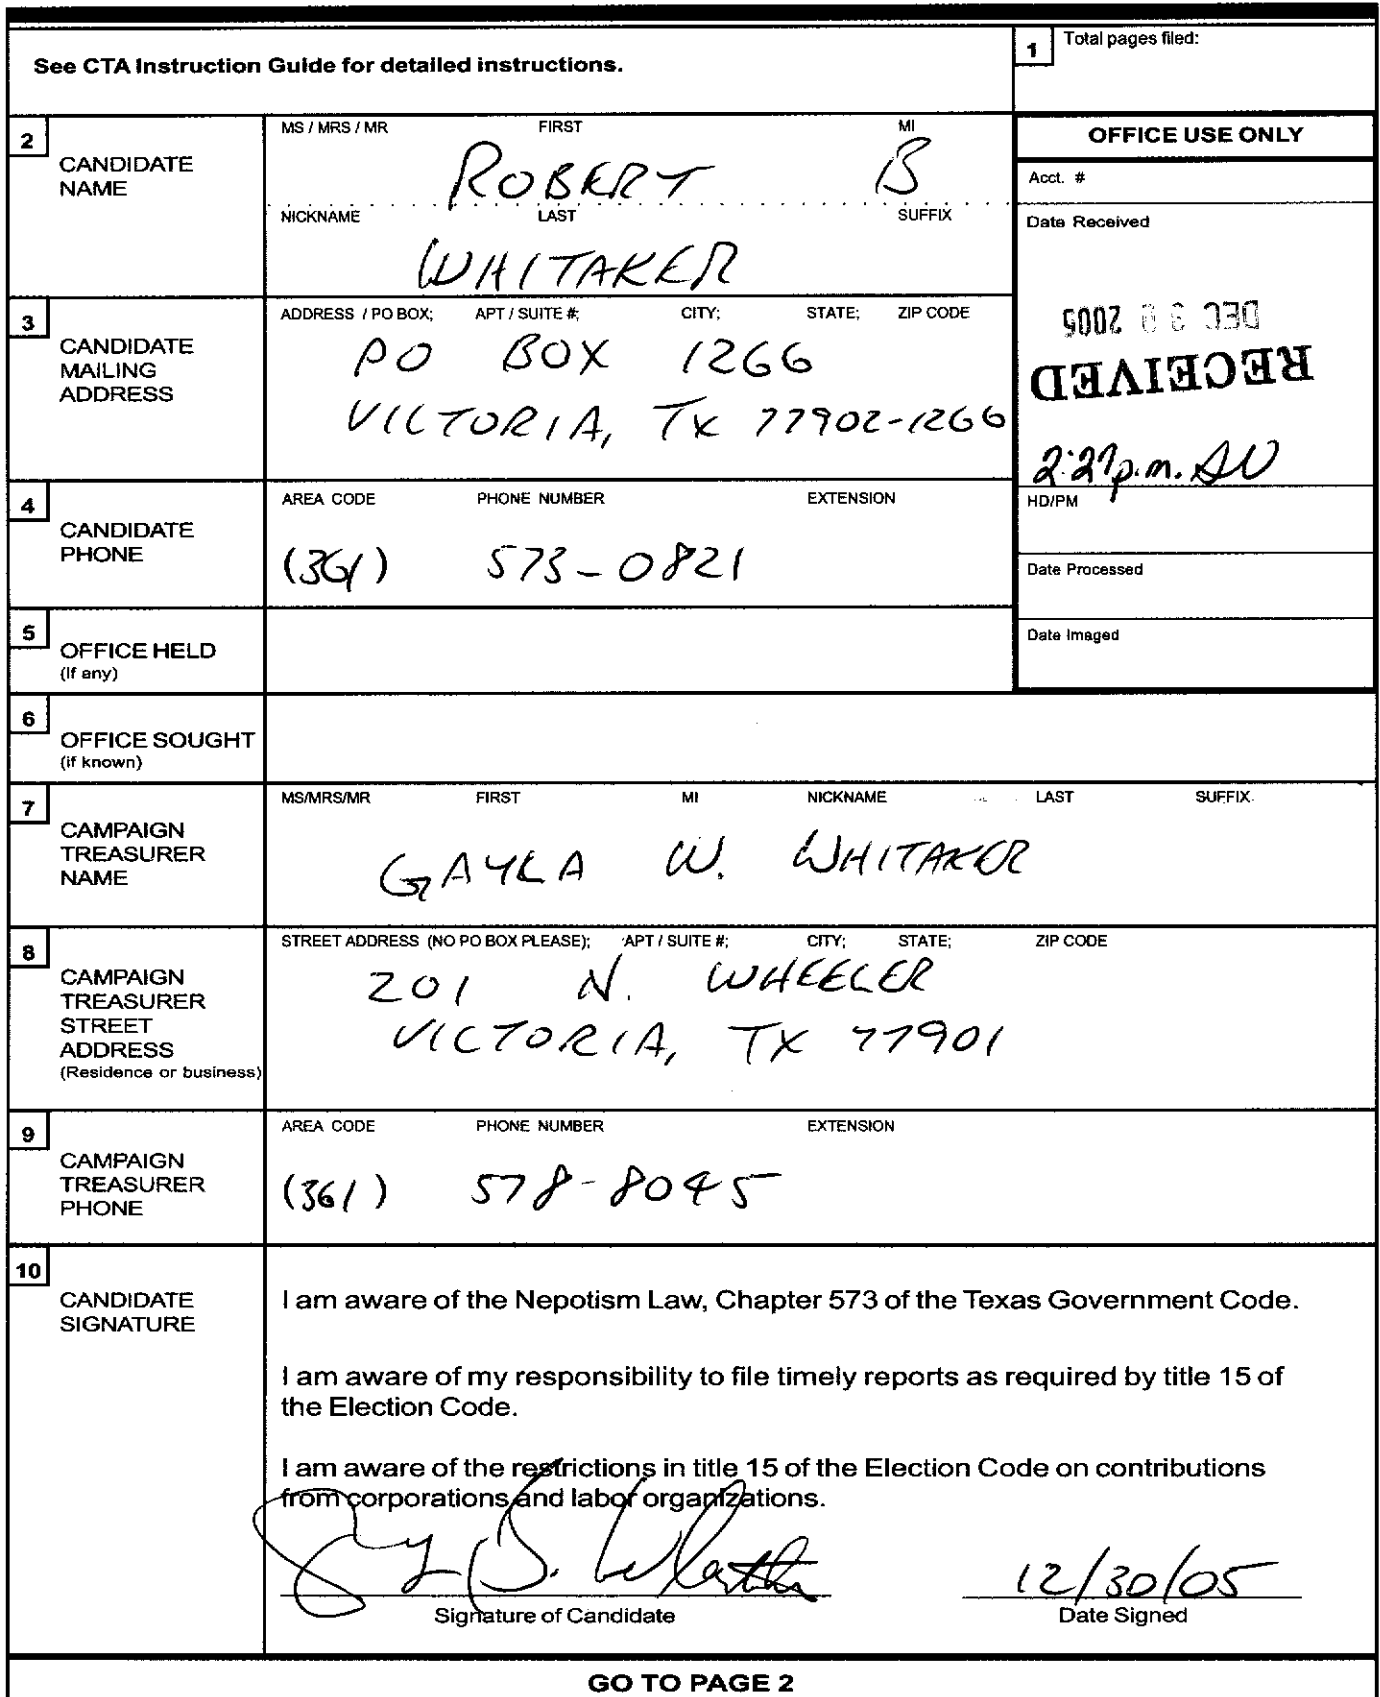 See CTA Instruction Guide for detailed instructions.
1 Total pages filed:
2 CANDIDATE NAME
MS / MRS / MR FIRST MI
ROBERT B
NICKNAME LAST SUFFIX
WHITAKER
OFFICE USE ONLY
Acct. #
Date Received
DEC 30 2005
RECEIVED
2:27p.m.
HD/PM
Date Processed
Date Imaged
3 CANDIDATE MAILING ADDRESS
ADDRESS / PO BOX; APT / SUITE #; CITY; STATE; ZIP CODE
PO BOX 1266
VICTORIA, TX 77902-1266
4 CANDIDATE PHONE
AREA CODE PHONE NUMBER EXTENSION
(361) 573-0821
5 OFFICE HELD
(If any)
6 OFFICE SOUGHT
(if known)
7 CAMPAIGN TREASURER NAME
MS/MRS/MR FIRST MI NICKNAME LAST SUFFIX
GAYLA W. WHITAKER
8 CAMPAIGN TREASURER STREET ADDRESS
(Residence or business)
STREET ADDRESS (NO PO BOX PLEASE); APT / SUITE #; CITY; STATE; ZIP CODE
201 N. WHEELER
VICTORIA, TX 77901
9 CAMPAIGN TREASURER PHONE
AREA CODE PHONE NUMBER EXTENSION
(361) 578-8045
10 CANDIDATE SIGNATURE
I am aware of the Nepotism Law, Chapter 573 of the Texas Government Code.
I am aware of my responsibility to file timely reports as required by title 15 of
the Election Code.
I am aware of the restrictions in title 15 of the Election Code on contributions
from corporations and labor organizations.
12/30/05
Signature of Candidate Date Signed
GO TO PAGE 2